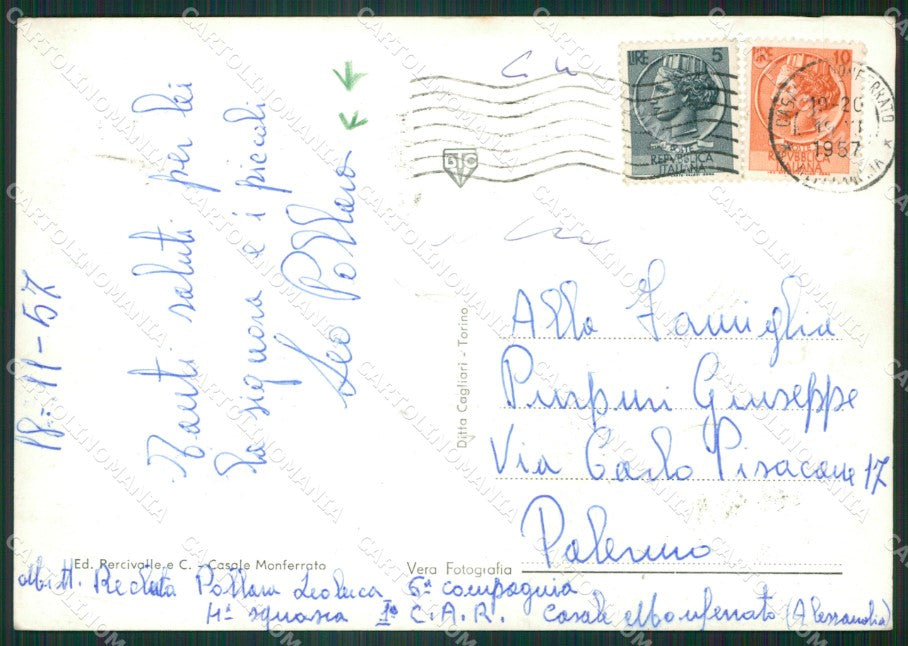 18-11-57
Tanti saluti per lei
la signora e i piccoli
Leo Pollara
LIRE 5
REPVBBLICA
ITALIANA
LIRE 10
REPVBBLICA
ITALIANA
CASALE MONFERRATO
19-20
1957
Ditta Cagliari - Torino
Alla Famiglia
Purpuri Giuseppe
Via Carlo Pisacane 17
Palermo
Ed. Percivalle e C. - Casale Monferrato
Vera Fotografia
Mitt. Recluta Pollara Leoluca 6ª compagnia
4ª squadra 1° C.A.R. Casale Monferrato (Alessandria)
CARTOLINOMANIA